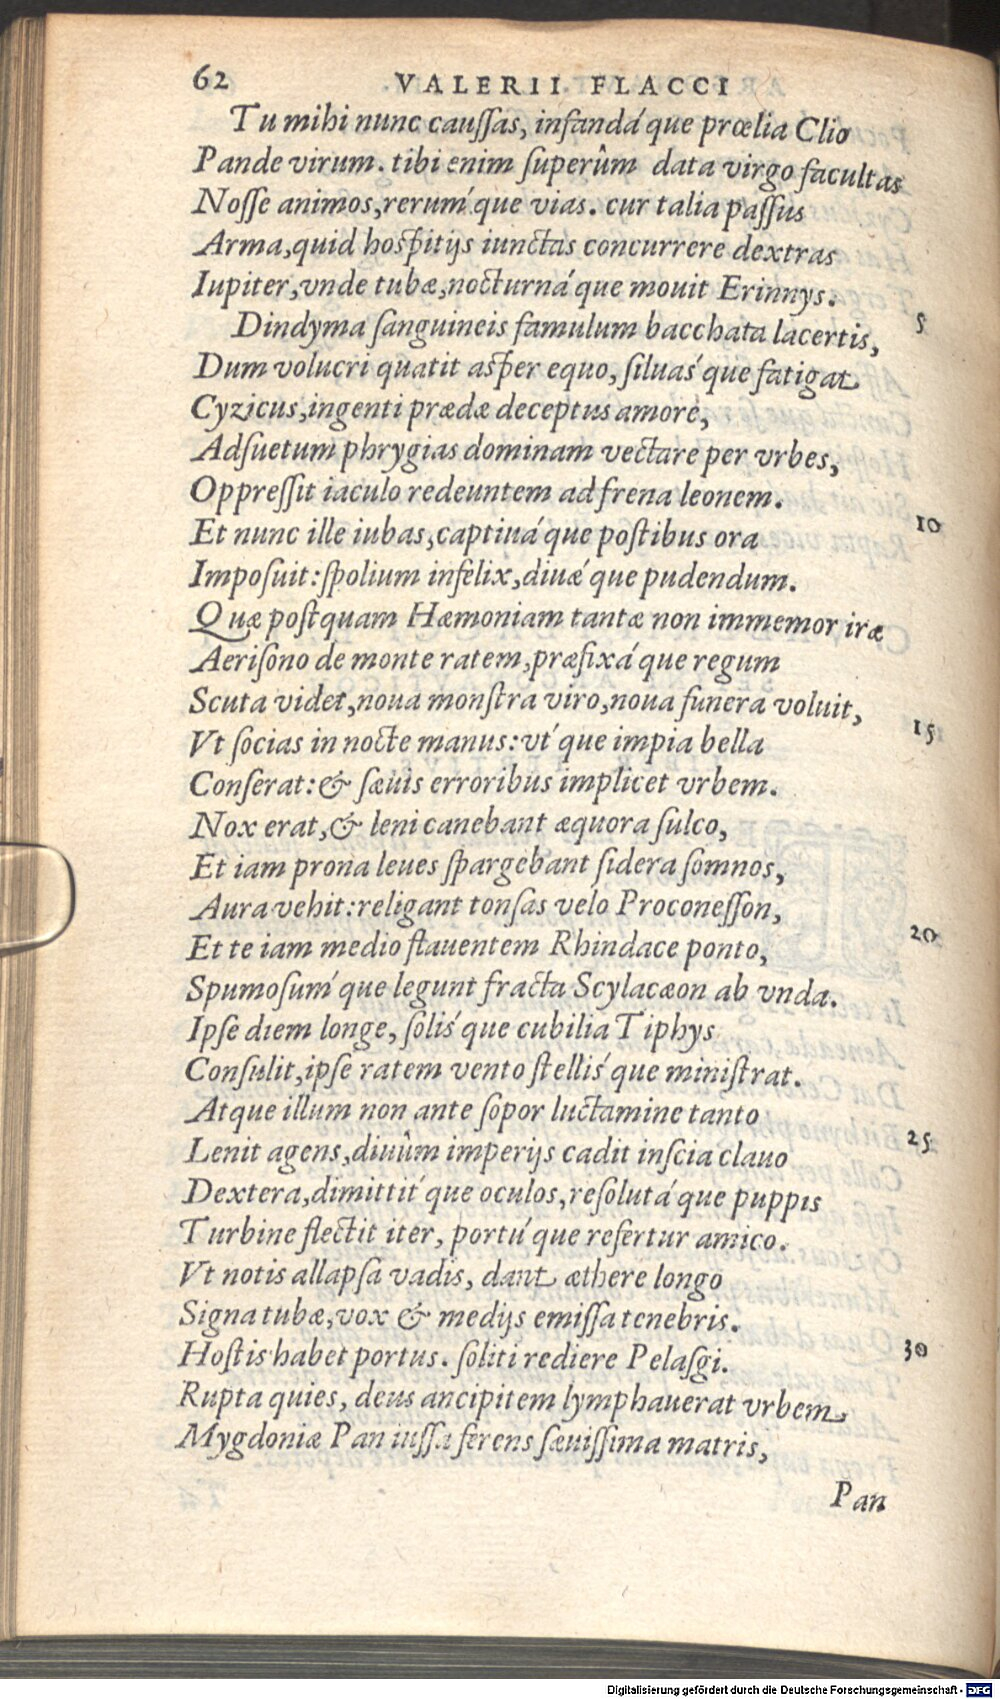 62 VALERII FLACCI
Tu mihi nunc cauſſas, infandá que prœlia Clio
Pande virum. tibi enim ſuperûm data virgo facultas
Noſſe animos, rerum´que vias. cur talia paſſus
Arma, quid hoſpitijs iunctas concurrere dextras
Iupiter, vnde tubæ, nocturná que mouit Erinnys.
5
Dindyma ſanguineis famulum bacchata lacertis,
Dum volucri quatit aſper equo, ſiluas´que fatigat
Cyzicus, ingenti prædæ deceptus amore,
Adſuetum phrygias dominam vectare per vrbes,
Oppreſſit iaculo redeuntem ad frena leonem.
10
Et nunc ille iubas, captiuá que poſtibus ora
Impoſuit: ſpolium infelix, diuæ´que pudendum.
Quæ poſtquam Hæmoniam tantæ non immemor iræ
Aeriſono de monte ratem, præfixá que regum
Scuta videt, noua monſtra viro, noua funera voluit,
15
Vt ſocias in nocte manus: vt´que impia bella
Conſerat: & ſæuis erroribus implicet vrbem.
Nox erat, & leni canebant æquora ſulco,
Et iam prona leues ſpargebant ſidera ſomnos,
Aura vehit: religant tonſas velo Proconeſſon,
20
Et te iam medio flauentem Rhindace ponto,
Spumoſum´que legunt fracta Scylacæon ab vnda.
Ipſe diem longe, ſolis´que cubilia Tiphys
Conſulit, ipſe ratem vento ſtellis´que miniſtrat.
Atque illum non ante ſopor luctamine tanto
25
Lenit agens, diuûm imperijs cadit inſcia clauo
Dextera, dimittit´que oculos, reſolutá que puppis
Turbine flectit iter, portú que refertur amico.
Vt notis allapſa vadis, dant æthere longo
Signa tubæ, vox & medijs emiſſa tenebris.
30
Hoſtis habet portus. ſoliti rediere Pelaſgi.
Rupta quies, deus ancipitem lymphauerat vrbem,
Mygdoniæ Pan iuſſa ferens ſæuiſſima matris,
Pan
Digitalisierung gefördert durch die Deutsche Forschungsgemeinschaft - DFG